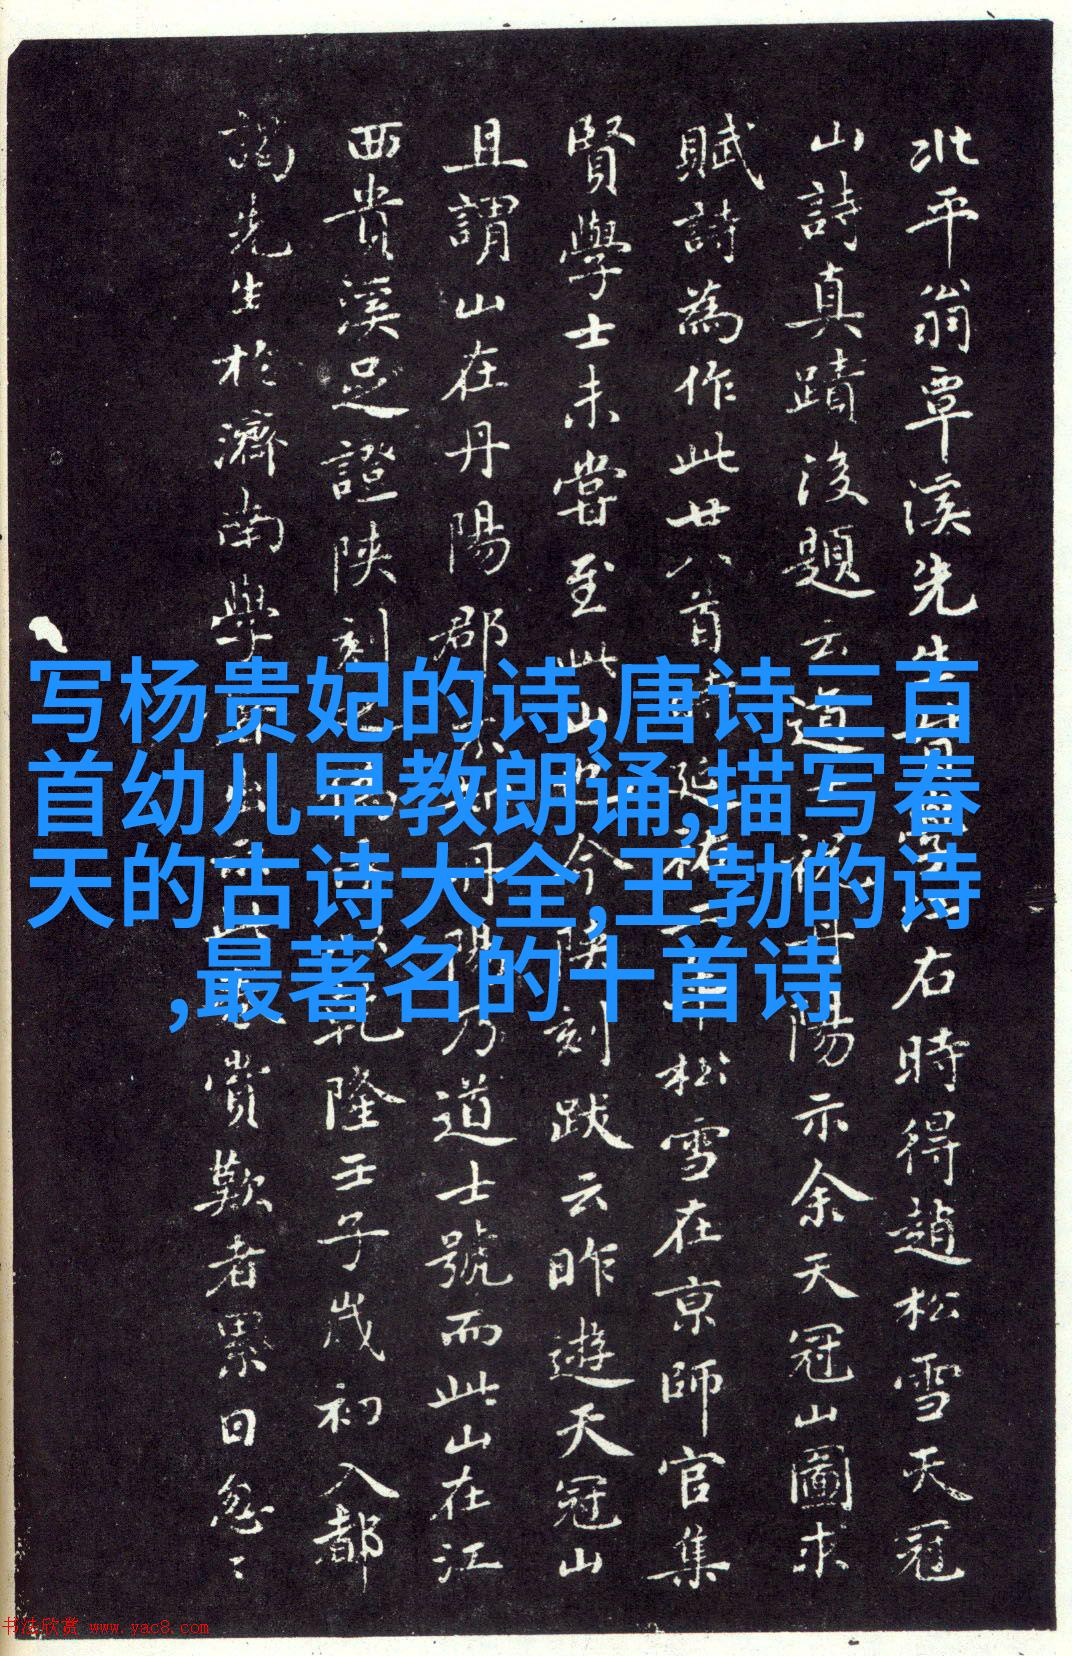 北平翁覃溪先生
右時得趙松雪天冠
山詩真蹟後題云道士祝丹陽示余天冠山圖求
賦詩為作此廿八首
延祐二年
松雪在京師官集
賢學士未嘗至此山也今陝刻跋云昨遊天冠山
且謂山在丹陽郡
丹陽乃道士號而此山在江
西貴溪足證陝刻
乾隆壬子歲初入都
謁先生於濟南學
賞歎者累日忽〻
写杨贵妃的诗,唐诗三百
首幼儿早教朗诵,描写春
天的古诗大全,王勃的诗
,最著名的十首诗
书法欣赏 www.yac8.com